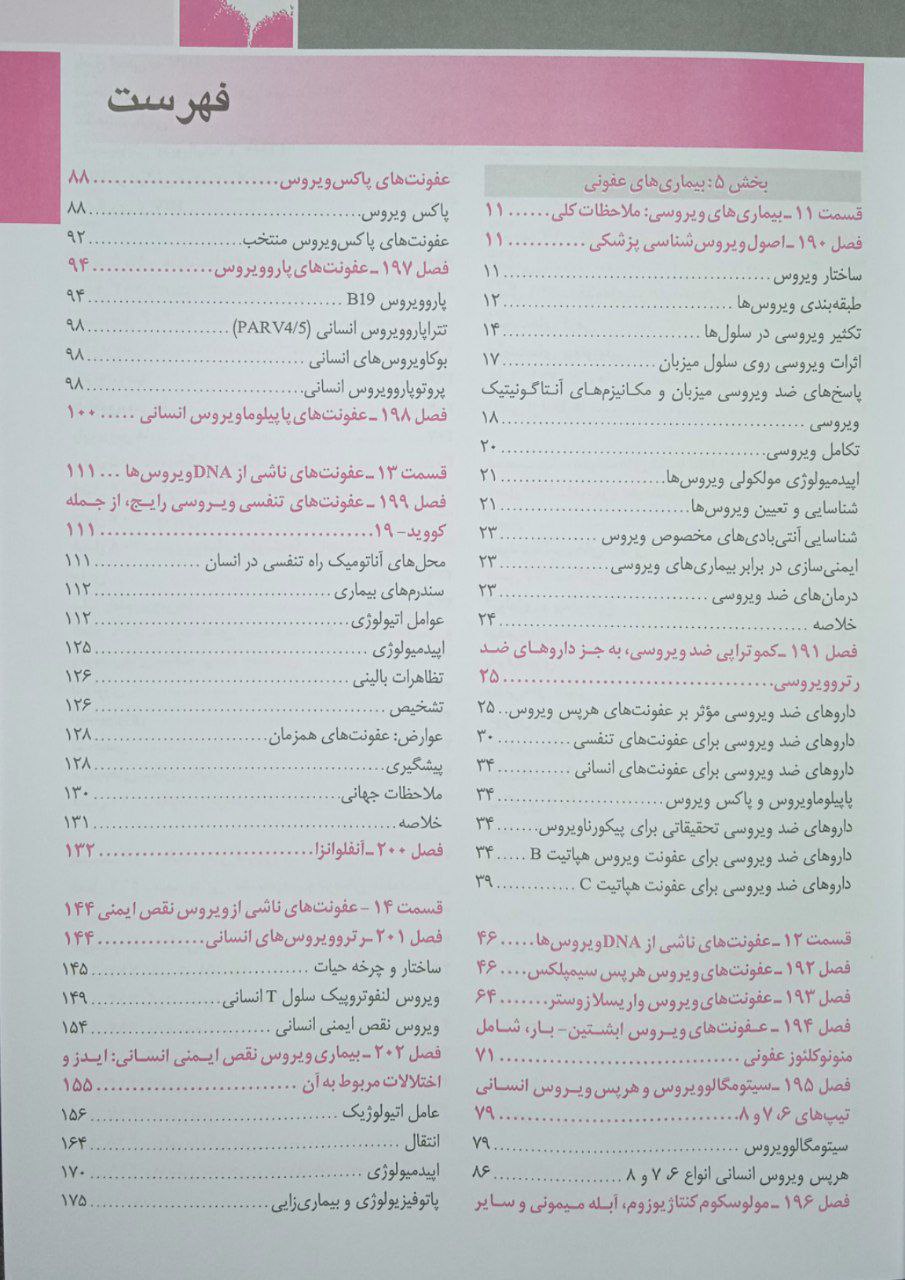 فهرست
بخش ۵: بیماری‌های عفونی
قسمت ۱۱ ـ بیماری‌های ویروسی: ملاحظات کلی ...... ۱۱
فصل ۱۹۰ ـ اصول ویروس‌شناسی پزشکی ........... ۱۱
ساختار ویروس .......................................... ۱۱
طبقه‌بندی ویروس‌ها .................................. ۱۲
تکثیر ویروسی در سلول‌ها ............................ ۱۴
اثرات ویروسی روی سلول میزبان ..................... ۱۷
پاسخ‌های ضد ویروسی میزبان و مکانیزم‌های آنتاگونیتیک
ویروسی ................................................ ۱۸
تکامل ویروسی .......................................... ۲۰
اپیدمیولوژی مولکولی ویروس‌ها ....................... ۲۱
شناسایی و تعیین ویروس‌ها ........................... ۲۱
شناسایی آنتی‌بادی‌های مخصوص ویروس ............. ۲۳
ایمنی‌سازی در برابر بیماری‌های ویروسی .............. ۲۳
درمان‌های ضد ویروسی ................................ ۲۳
خلاصه .................................................. ۲۴
فصل ۱۹۱ ـ کموتراپی ضد ویروسی، به جز داروهای ضد
رتروویروسی ........................................... ۲۵
داروهای ضد ویروسی مؤثر بر عفونت‌های هرپس ویروس .. ۲۵
داروهای ضد ویروسی برای عفونت‌های تنفسی ........... ۳۰
داروهای ضد ویروسی برای عفونت‌های انسانی ........... ۳۴
پاپیلوماویروس و پاکس ویروس ......................... ۳۴
داروهای ضد ویروسی تحقیقاتی برای پیکورناویروس ....... ۳۴
داروهای ضد ویروسی برای عفونت ویروس هپاتیت B ..... ۳۴
داروهای ضد ویروسی برای عفونت هپاتیت C ............ ۳۹
قسمت ۱۲ ـ عفونت‌های ناشی از DNAویروس‌ها ..... ۴۶
فصل ۱۹۲ ـ عفونت‌های ویروس هرپس سیمپلکس .... ۴۶
فصل ۱۹۳ ـ عفونت‌های ویروس واریسلا زوستر ....... ۶۴
فصل ۱۹۴ ـ عفونت‌های ویروس ابشتین - بار، شامل
منونوکلئوز عفونی .................................... ۷۱
فصل ۱۹۵ ـ سیتومگالوویروس و هرپس ویروس انسانی
تیپ‌های ۶، ۷ و ۸ .................................... ۷۹
سیتومگالوویروس ....................................... ۷۹
هرپس ویروس انسانی انواع ۶، ۷ و ۸ ................... ۸۶
فصل ۱۹۶ ـ مولوسکوم کنتاژیوزوم، آبله میمونی و سایر
عفونت‌های پاکس‌ویروس .............................. ۸۸
پاکس ویروس ........................................... ۸۸
عفونت‌های پاکس‌ویروس منتخب ....................... ۹۲
فصل ۱۹۷ ـ عفونت‌های پاروویروس ................... ۹۴
پاروویروس B19 ........................................ ۹۴
تتراپاروویروس انسانی (PARV4/5) ..................... ۹۸
بوکاویروس‌های انسانی .................................. ۹۸
پروتوپاروویروس انسانی ................................. ۹۸
فصل ۱۹۸ ـ عفونت‌های پاپیلوماویروس انسانی ..... ۱۰۰
قسمت ۱۳ ـ عفونت‌های ناشی از DNAویروس‌ها ... ۱۱۱
فصل ۱۹۹ ـ عفونت‌های تنفسی ویروسی رایج، از جمله
کووید- ۱۹ ............................................ ۱۱۱
محل‌های آناتومیک راه تنفسی در انسان ............... ۱۱۱
سندرم‌های بیماری ..................................... ۱۱۲
عوامل اتیولوژی ......................................... ۱۱۲
اپیدمیولوژی ............................................ ۱۲۵
تظاهرات بالینی ......................................... ۱۲۶
تشخیص ................................................ ۱۲۶
عوارض: عفونت‌های همزمان ........................... ۱۲۸
پیشگیری ............................................... ۱۲۸
ملاحظات جهانی ........................................ ۱۳۰
خلاصه .................................................. ۱۳۱
فصل ۲۰۰ ـ آنفلوانزا ................................. ۱۳۲
قسمت ۱۴ - عفونت‌های ناشی از ویروس نقص ایمنی ۱۴۴
فصل ۲۰۱ ـ رتروویروس‌های انسانی ................ ۱۴۴
ساختار و چرخه حیات ................................. ۱۴۵
ویروس لنفوتروپیک سلول T انسانی ................... ۱۴۹
ویروس نقص ایمنی انسانی ............................. ۱۵۴
فصل ۲۰۲ ـ بیماری ویروس نقص ایمنی انسانی: ایدز و
اختلالات مربوط به آن ............................... ۱۵۵
عامل اتیولوژیک ........................................ ۱۵۶
انتقال ................................................... ۱۶۴
اپیدمیولوژی ............................................ ۱۷۰
پاتوفیزیولوژی و بیماری‌زایی ............................ ۱۷۵